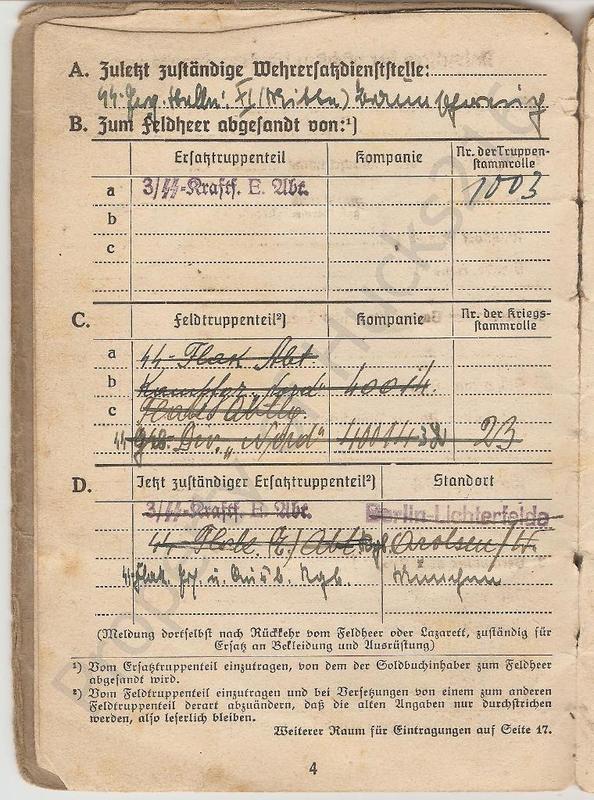 A. Zuletzt zuständige Wehrersatzdienststelle:
Braunschweig
B. Zum Feldheer abgesandt von:¹)
Ersatztruppenteil Kompanie Nr. der Truppen-
stammrolle
a 3/SS-Kraftf. E. Abt. 1003
b
c
C. Feldtruppenteil²) Kompanie Nr. der Kriegs-
stammrolle
a SS-Flak Abt.
b Kampfgr. Nord 40014.
c
SS Geb. Div. „Nord" 40014 23
D. Jetzt zuständiger Ersatztruppenteil²) Standort
3/SS-Kraftf. E. Abt. Berlin-Lichterfelde
SS-Flak (E.) Abt. Arolsen/W.
SS Flak. u. Ausb. Rgt. München
(Meldung dortselbst nach Rückkehr vom Feldheer oder Lazarett, zuständig für
Ersatz an Bekleidung und Ausrüstung)
¹) Vom Ersatztruppenteil einzutragen, von dem der Soldbuchinhaber zum Feldheer
abgesandt wird.
²) Vom Feldtruppenteil einzutragen und bei Versetzungen von einem zum anderen
Feldtruppenteil derart abzuändern, daß die alten Angaben nur durchstrichen
werden, also leserlich bleiben.
Weiterer Raum für Eintragungen auf Seite 17.
4